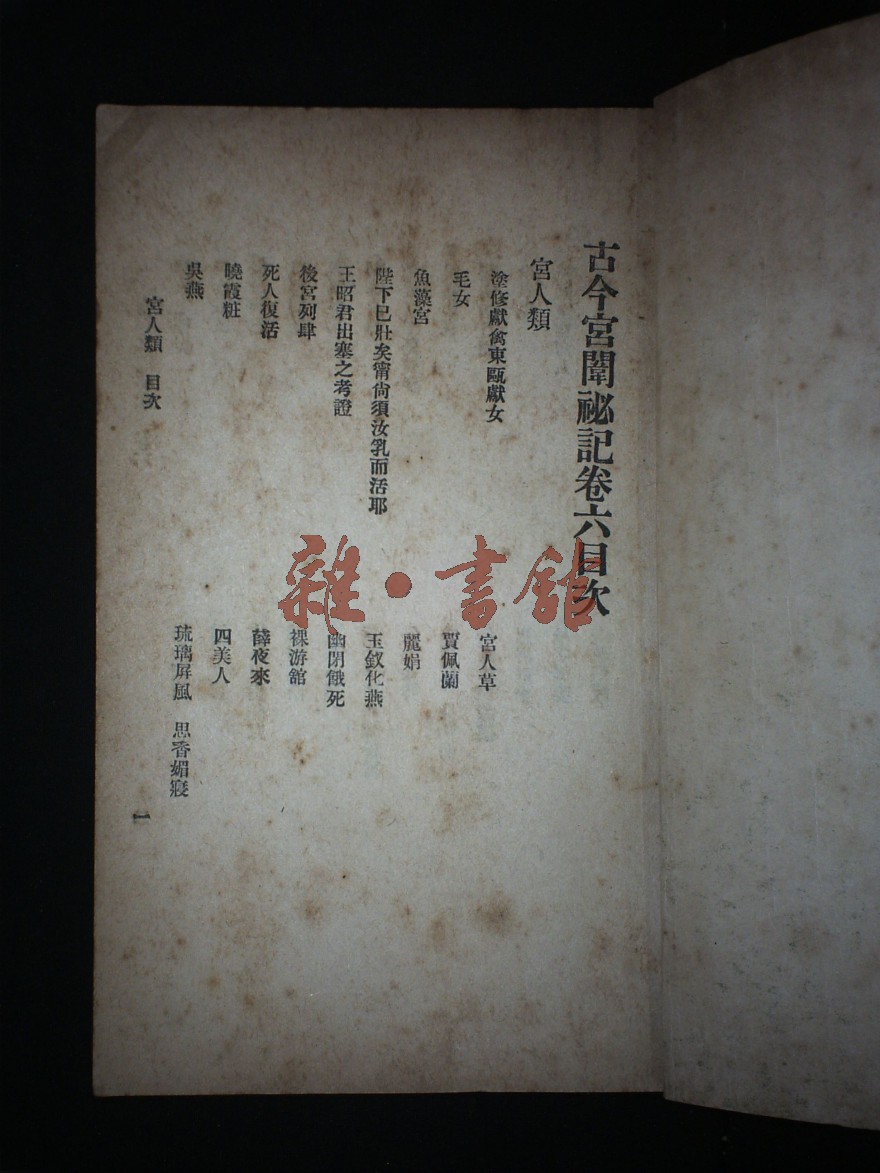 古今宮闈祕記卷六目次
宮人類
塗修獻禽東甌獻女
宮人草
毛女
賈佩蘭
魚藻宮
麗娟
陛下已壯矣甯尙須汝乳而活耶
玉釵化燕
王昭君出塞之考證
幽閉餓死
後宮列肆
裸游館
死人復活
薛夜來
曉霞粧
四美人
吳燕
琉璃屏風 思香媚寢
宮人類 目次
一
雜·書館